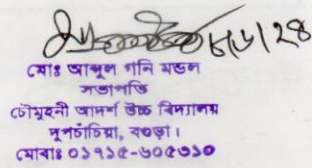 ৮/৬/২৪
মোঃ আব্দুল গনি মন্ডল
সভাপতি
চৌমুহনী আদর্শ উচ্চ বিদ্যালয়
দুপচাঁচিয়া, বগুড়া।
মোবাঃ ০১৭১৫-৬০৫৩১০